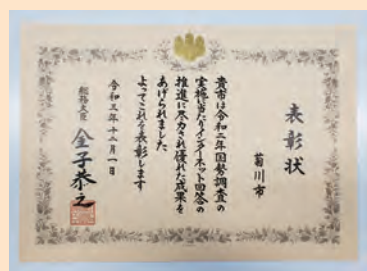 表彰状
菊川市
貴市は令和二年国勢調査の
実施に当たりインターネット回答の
推進に尽力され優れた成果を
あげられました
よってこれを表彰します
令和三年十二月一日
総務大臣 金子恭之